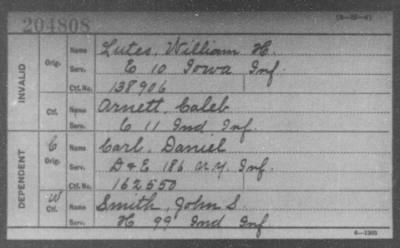 204808
INVALID
Orig. Name Lutes, William H.
Serv. E 10 Iowa Inf.
Ctf. No. 138906
Ctf. Name Arnett, Caleb
Serv. C 11 Ind Inf.
DEPENDENT
C Orig. Name Carl, Daniel
Serv. D & E 186 N.Y. Inf.
Ctf. No. 162550
W Ctf. Name Smith, John S.
Serv. H 99 Ind Inf.